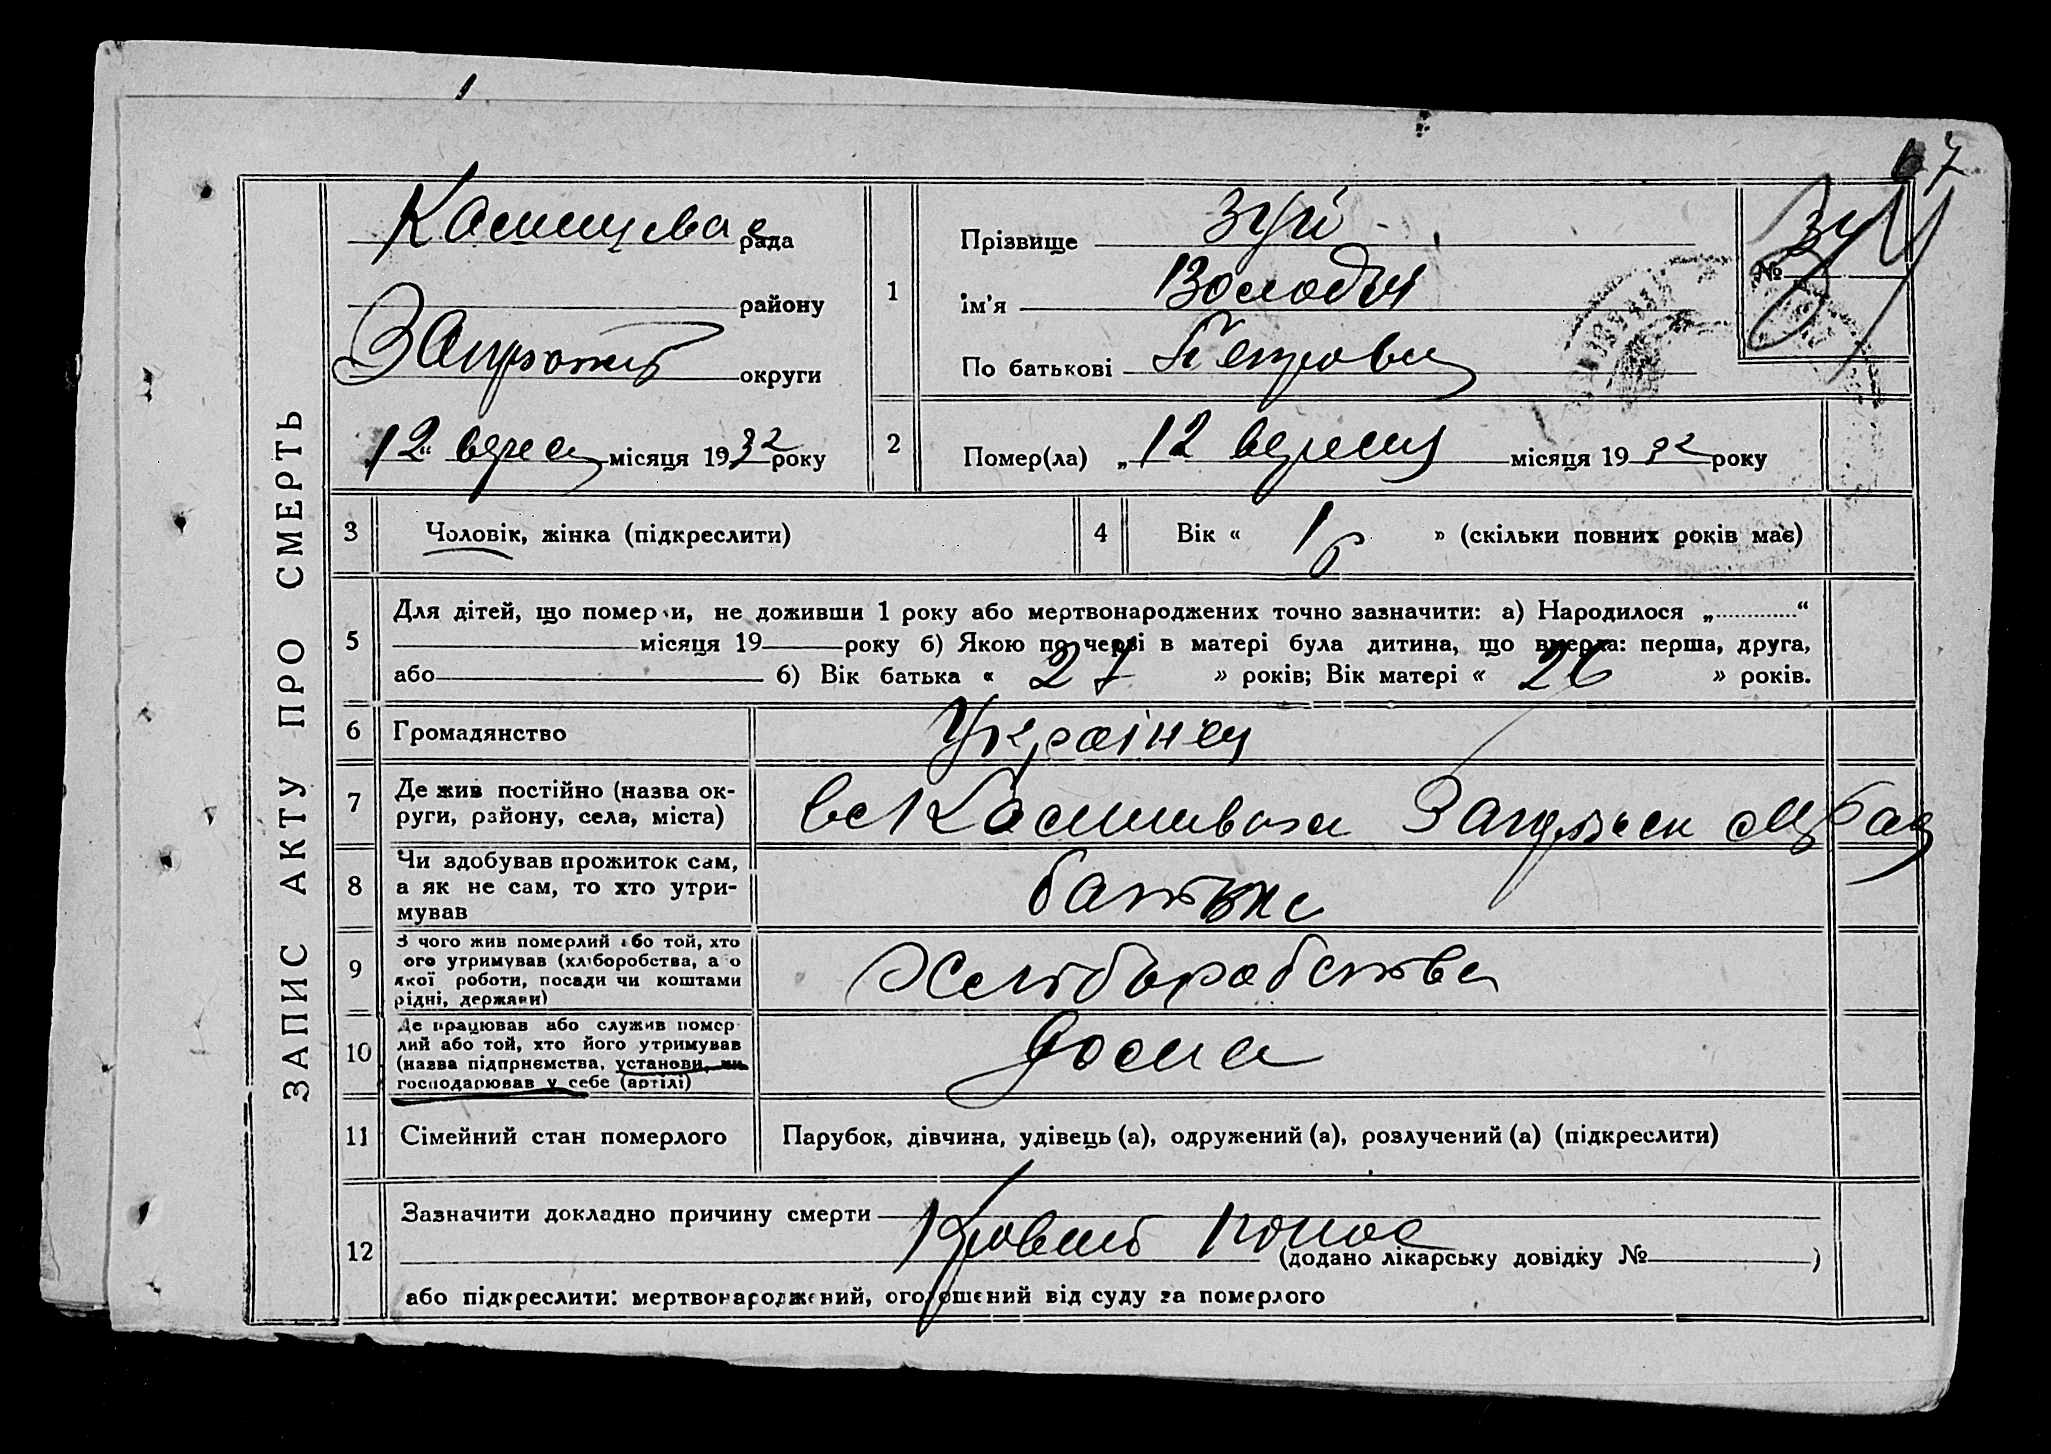 67
ЗАПИС АКТУ ПРО СМЕРТЬ
рада
району
округи
12 " верес місяця 1932 року
1
Прізвище Зуй
Ім'я Володя
По батькові Петрови
№ 34
2
Помер(ла) „ 12 вересня місяця 1932 року
3
Чоловік, жінка (підкреслити)
4
Вік « 1 » (скільки повних років має)
5
Для дітей, що померли, не доживши 1 року або мертвонароджених точно зазначити: а) Народилося „ “
місяця 19 року б) Якою по черзі в матері була дитина, що вмерла: перша, друга,
або б) Вік батька « 27 » років; Вік матері « 26 » років.
6
Громадянство
Українец
7
Де жив постійно (назва ок-
руги, району, села, міста)
8
Чи здобував прожиток сам,
а як не сам, то хто утри-
мував
батьке
9
З чого жив померлий або той, хто
ого утримував (хліборобства, а о
якої роботи, посади чи коштами
рідні, держави)
Хлеборобства
10
Де працював або служив помер-
лий або той, хто його утримував
(назва підприємства, установи, чи
господарював у себе (артілі)
Дома
11
Сімейний стан померлого
Парубок, дівчина, удівець (а), одружений (а), розлучений (а) (підкреслити)
12
Зазначити докладно причину смерти
Кровний понос (додано лікарську довідку № )
або підкреслити: мертвонароджений, оголошений від суду за померлого